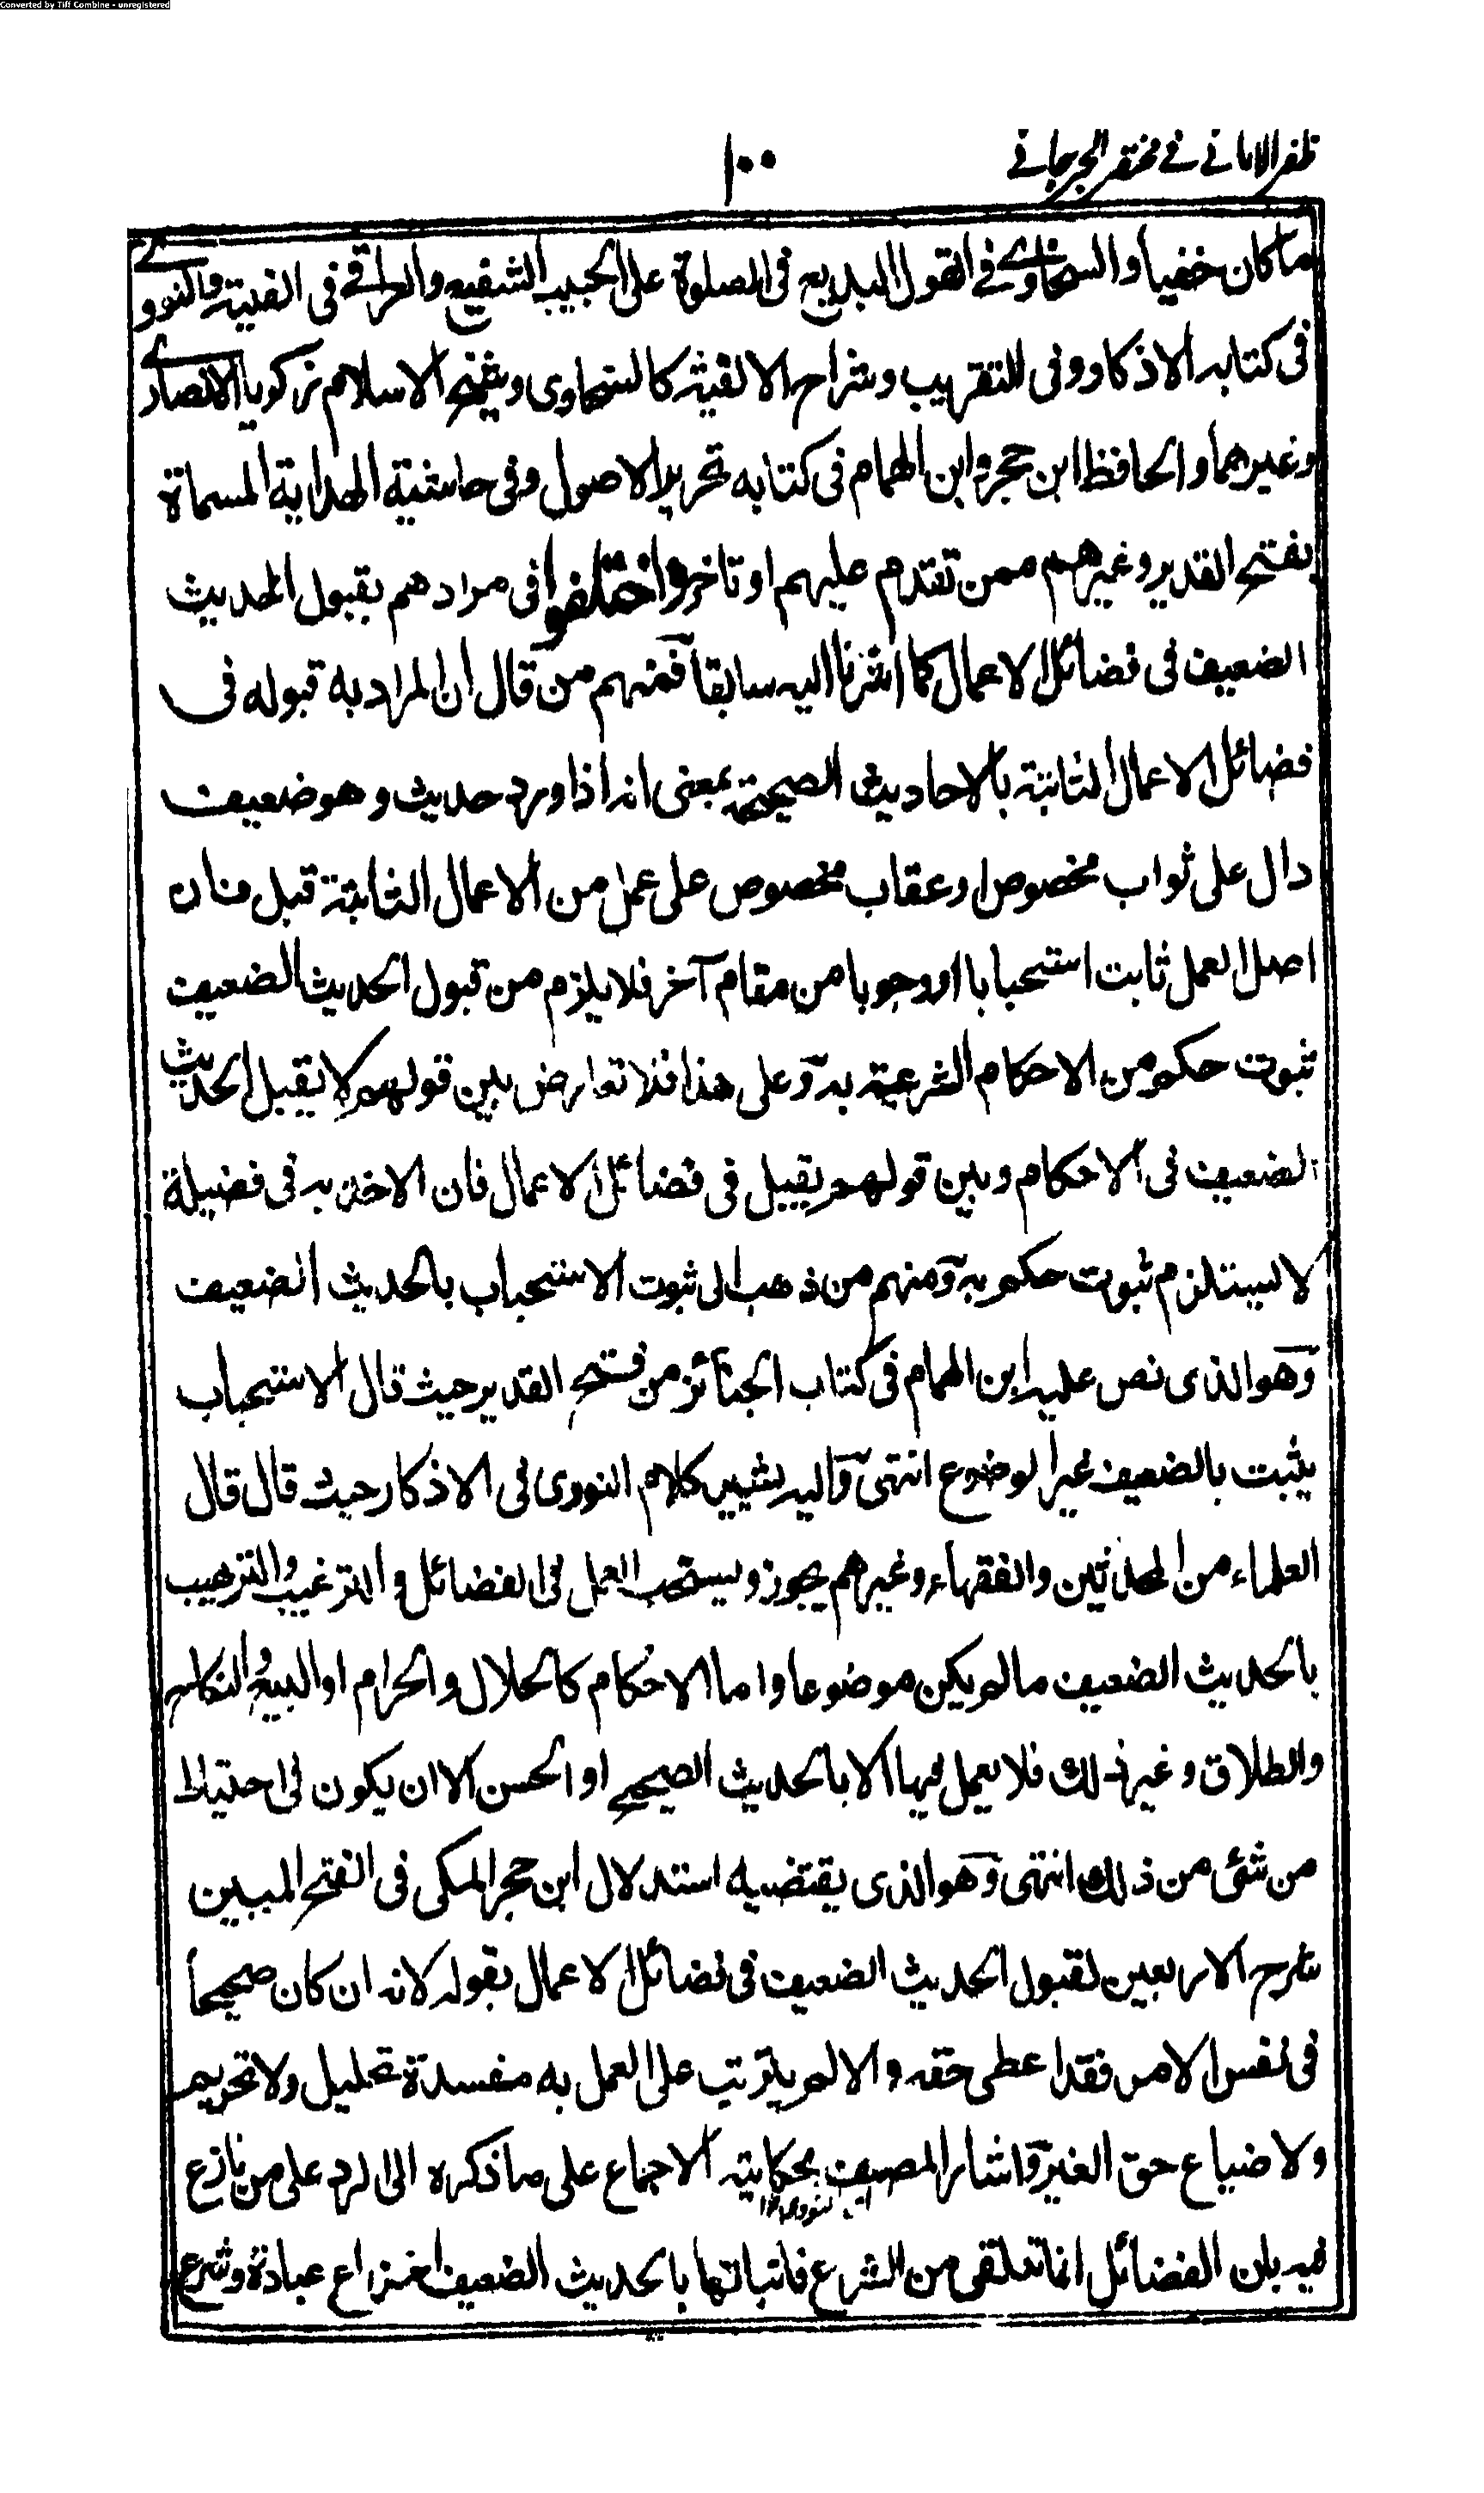 Converted by Tiff Combine - unregistered
ظفر الامانے فے مختصر الجرجانے
١٠٠
ما كان خفيا والسخاوے فے القول البديع فى الصلوة على الحبيب الشفيع والعراقے فى الفيته والنووے
فى كتابه الاذكار وفى التقريب وشراح الالفية كالسخاوى وشيخ الاسلام زكريا الانصارے
وغيرهما والحافظ ابن حجر وابن الهمام فى كتابه تحرير الاصول وفى حاشية الهداية المسماة
بفتح القدير وغيرهم ممن تقدم عليهم او تاخر واختلفوا فى مرادهم بقبول الحديث
الضعيف فى فضائل الاعمال كما اشرنا اليه سابقا فمنهم من قال ان المراد به قبوله فى
فضائل الاعمال الثابتة بالاحاديث الصحيحة بمعنى انه اذا ورد حديث وهو ضعيف
دال على ثواب مخصوص او عقاب مخصوص على عمل من الاعمال الثابتة قبل فان
اصل العمل ثابت استحبابا او وجوبا من مقام آخر فلا يلزم من قبول الحديث الضعيف
ثبوت حكم من الاحكام الشرعية به وعلى هذا فلا تعارض بين قولهم لا يقبل الحديث
الضعيف فى الاحكام وبين قولهم يقبل فى فضائل الاعمال فان الاخذ به فى فضيلة
لا يستلزم ثبوت حكم به ومنهم من ذهب الى ثبوت الاستحباب بالحديث الضعيف
وهو الذى نص عليه ابن الهمام فى كتاب الجنائز من فتح القدير حيث قال الاستحباب
يثبت بالضعيف غير الموضوع انتهى واليه يشير كلام النووى فى الاذكار حيث قال قال
العلماء من المحدثين والفقهاء وغيرهم يجوز ويستحب العمل فى الفضائل و الترغيب والترهيب
بالحديث الضعيف ما لم يكن موضوعا واما الاحكام كالحلال والحرام او البيع والنكاح
والطلاق وغير ذلك فلا يعمل فيها الا بالحديث الصحيح او الحسن الا ان يكون فى احتياط
من شئ من ذلك انتهى وهو الذى يقتضيه استدلال ابن حجر المكى فى الفتح المبين
شرح الاربعين لقبول الحديث الضعيف فى فضائل الاعمال بقوله لانه ان كان صحيحا
فى نفس الامر فقد اعطى حقه والا لم يترتب على العمل به مفسدة تحليل ولا تحريم
ولا ضياع حق الغير واشار المصنف بحكاية الاجماع على ما ذكره الى الرد على من نازع
فيه بان الفضائل انما تتلقى من الشرع فاثباتها بالحديث الضعيف اختراع عبادة وشرع